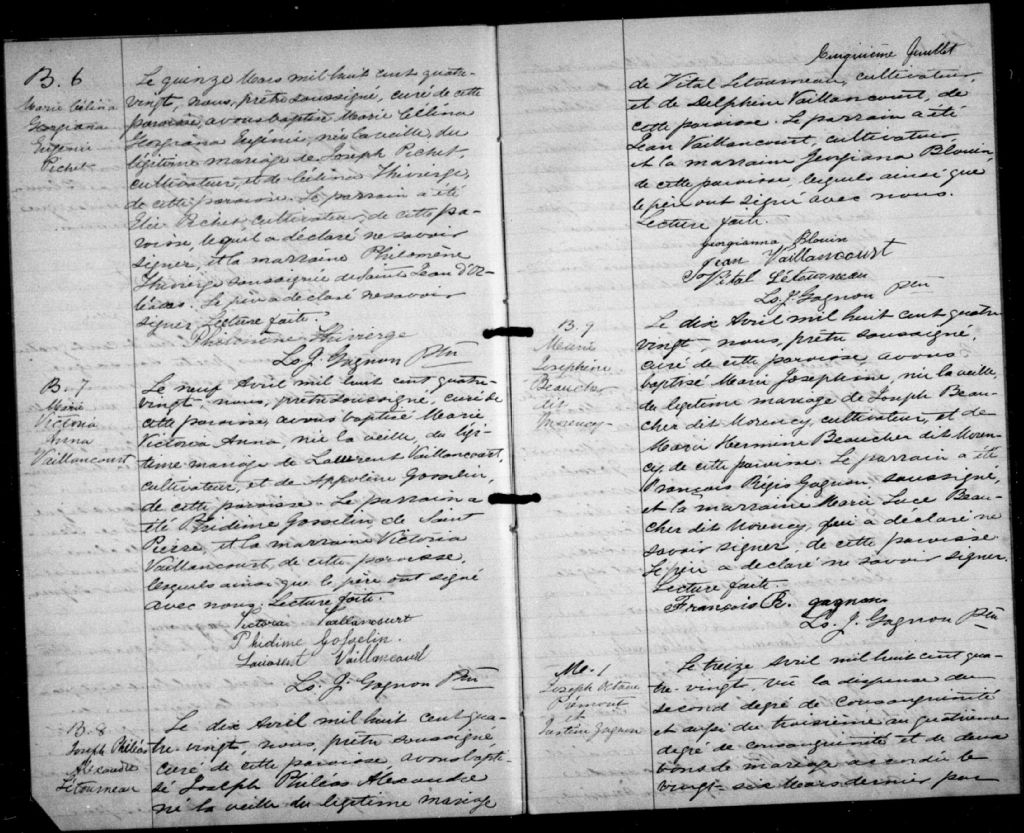 B. 6
Marie Célina
Georgiana
Eugénie
Pichet
Le quinze Mars mil huit cent quatre-
vingt, nous, prêtre soussigné, curé de cette
paroisse, avons baptisé Marie Célina
Georgiana Eugénie, née la veille, du
légitime mariage de Joseph Pichet,
cultivateur, et de Célina Thivierge,
de cette paroisse. Le parrain a été
Elie Pichet, cultivateur, de cette pa-
roisse, lequel a déclaré ne savoir
signer, et la marraine Philomène
Thivierge soussignée de Saint Jean d'Or-
léans. Le père a déclaré ne savoir
signer. Lecture faite.
Philomène Thivierge
Ls. J. Gagnon Ptre
B. 7
Marie
Victoria
Anna
Vaillancourt
Le neuf Avril mil huit cent quatre-
vingt, nous, prêtre soussigné, curé de
cette paroisse, avons baptisé Marie
Victoria Anna, née la veille, du légi-
time mariage de Laurent Vaillancourt,
cultivateur, et de Appoline Gosselin,
de cette paroisse. Le parrain a
été Phidime Gosselin, de Saint
Pierre, et la marraine Victoria
Vaillancourt, de cette paroisse,
lesquels ainsi que le père ont signé
avec nous. Lecture faite.
Victoria Vaillancourt
Phidime Gosselin.
Laurent Vaillancourt
Ls. J. Gagnon Ptre
B. 8
Joseph Philéas
Alexandre
Létourneau
Le dix Avril mil huit cent qua-
tre-vingt, nous, prêtre soussigné
curé de cette paroisse, avons bapti-
sé Joseph Philéas Alexandre
né la veille du légitime mariage
Cinquième feuillet
de Vital Létourneau, cultivateur,
et de Delphine Vaillancourt, de
cette paroisse. Le parrain a été
Jean Vaillancourt, cultivateur
et la marraine Georgiana Blouin,
de cette paroisse, lesquels ainsi que
le père ont signé avec nous.
Lecture faite.
Georgianna Blouin
Jean Vaillancourt
Vital Létourneau
Ls. J. Gagnon Ptre
B. 9
Marie
Josephine
Beaucher
dit
Morency
Le dix Avril mil huit cent quatre
vingt, nous, prêtre soussigné,
curé de cette paroisse avons
baptisé Marie Josephine, née la veille,
du légitime mariage de Joseph Beau-
cher dit Morency, cultivateur, et de
Marie Hermine Beaucher dit Moren-
cy, de cette paroisse. Le parrain a été
François Régis Gagnon, soussigné,
et la marraine Marie Luce Beau-
cher dit Morency, qui a déclaré ne
savoir signer, de cette paroisse
Le père a déclaré ne savoir signer.
Lecture faite.
François R. gagnon
Ls. J. Gagnon Ptre
M. 1
Joseph Octave
et
Gagnon
Le treize Avril mil huit cent qua-
tre-vingt, vu la dispense du
second degré de consanguinité
et aussi du troisième au quatrième
degré de consanguinité et de deux
bans de mariage accordée le
vingt-six Mars dernier par